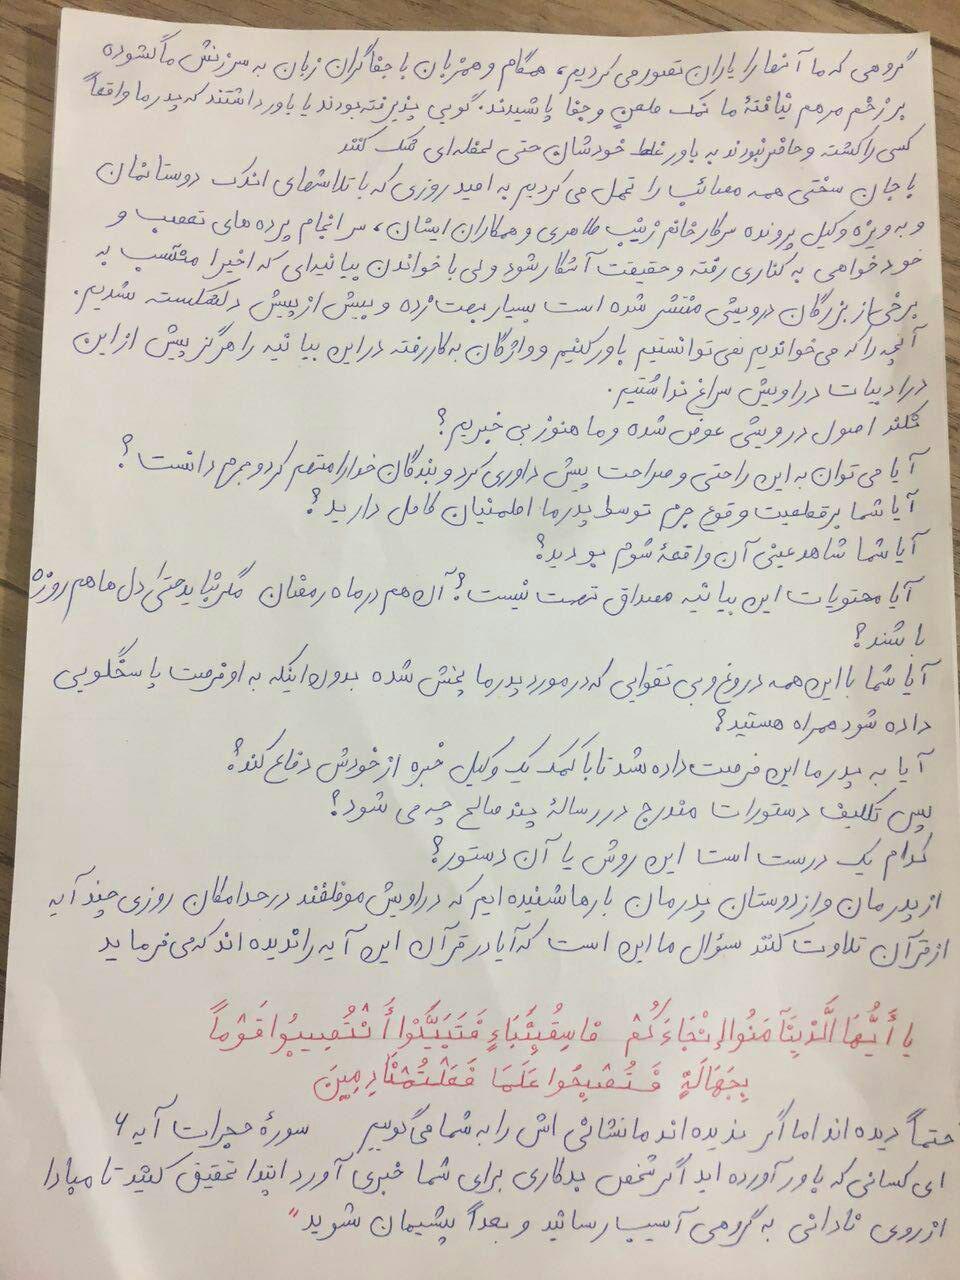 گروهی که ما آنها را یاران تصور می کردیم، همگام و همزبان با جفاگران زبان به سرزنش ما گشوده
بر زخم مرهم نیافتۀ ما نمک طعن و جفا پاشیدند. گویی پذیرفته بودند یا باور داشتند که پدر ما واقعاً
کسی را کشته و حاضر نبودند به باور غلط خودشان حتی لحظه ای شک کنند
با جان سختی همه مصائب را تحمل می کردیم به امید روزی که با تلاشهای اندک دوستانمان
و به ویژه وکیل پرونده سرکار خانم زینب طاهری و همکاران ایشان، سرانجام پرده های تعصب و
خودخواهی به کناری رفته و حقیقت آشکار شود ولی با خواندن بیانیه ای که اخیرا منتسب به
برخی از بزرگان درویشی منتشر شده است بسیار بهت زده و بیش از پیش دلشکسته شدیم.
آنچه را که می خواندیم نمی توانستیم باور کنیم و واژگان به کار رفته در این بیانیه را هرگز پیش از این
در ادبیات دراویش سراغ نداشتیم.
نکند اصول درویشی عوض شده و ما هنوز بی خبریم؟
آیا می توان به این راحتی و صراحت پیش داوری کرد و بندگان خدا را متهم کرد و مجرم دانست؟
آیا شما بر قطعیت وقوع جرم توسط پدر ما اطمینان کامل دارید؟
آیا شما شاهد عینی آن واقعۀ شوم بودید؟
آیا محتویات این بیانیه مصداق تهمت نیست؟ آن هم در ماه رمضان مگر نباید حتی دل ها هم روزه
باشند؟
آیا شما با این همه دروغ و بی تقوایی که در مورد پدر ما پخش شده بدون اینکه به او فرصت پاسخگویی
داده شود همراه هستید؟
آیا به پدر ما این فرصت داده شد تا با کمک یک وکیل خبره از خودش دفاع کند؟
پس تکلیف دستورات مندرج در رسالۀ پند صالح چه می شود؟
کدام یک درست است این روش یا آن دستور؟
از پدرمان و از دوستان پدرمان بارها شنیده ایم که دراویش موظفند در حد امکان روزی چند آیه
از قرآن تلاوت کنند سؤال ما این است که آیا در قرآن این آیه را ندیده اند که می فرماید
یا أَیُّهَا الَّذِینَ آمَنُوا إِنْ جَاءَکُمْ فَاسِقٌ بِنَبَاءٍ فَتَبَیَّنُوا أَنْ تُصِیبُوا قَوْماً
بِجَهَالَةٍ فَتُصْبِحُوا عَلَى مَا فَعَلْتُمْ نَادِمِینَ
حتماً دیده اند اما اگر ندیده اند ما نشانی اش را به شما می گوییم سورۀ حجرات آیه ۶
ای کسانی که باور آورده اید اگر شخص بدکاری برای شما خبری آورد ابتدا تحقیق کنید تا مبادا
از روی نادانی به گروهی آسیب رسانید و بعداً پشیمان شوید"